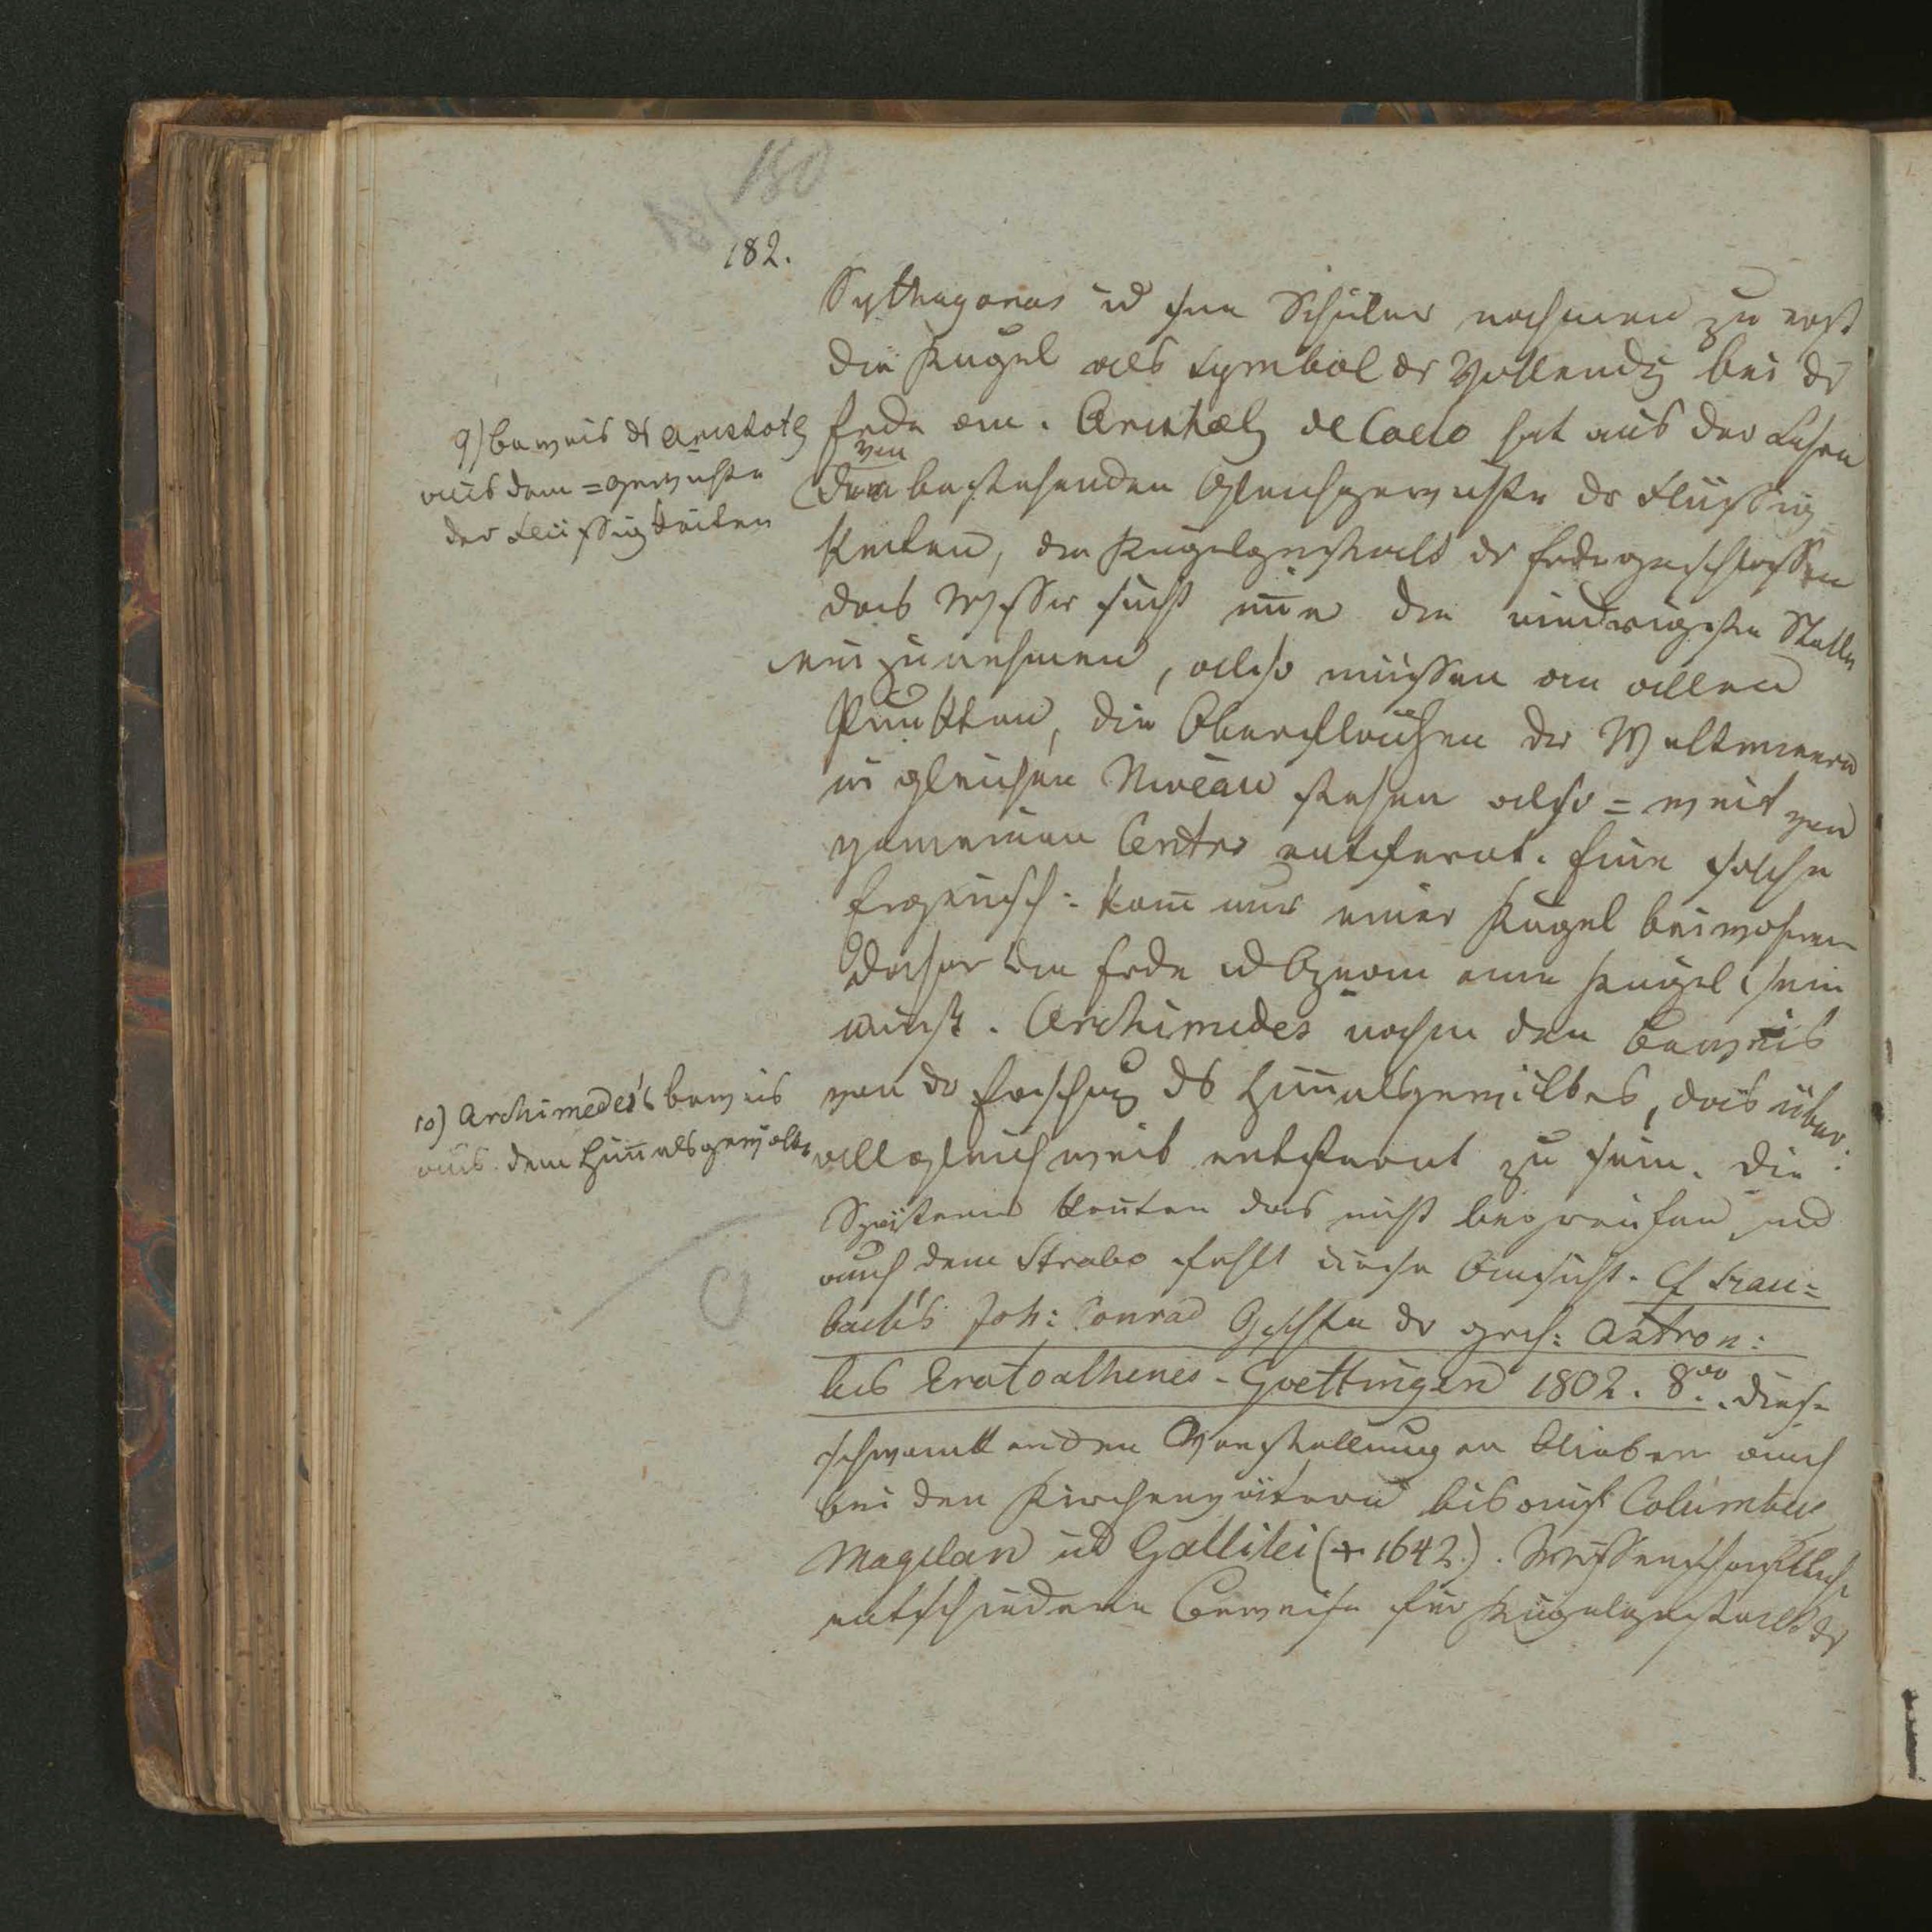 180
182.
Pythagoras ud seine Schüler nahmen zu erst
die Kugel als Symbol dr Vollendg bei dr
Erde an. Aristotels de Caelo hat aus der Lehre
von
dem bestehenden Gleichgewichte dr Flüssig
keiten, die Kugelgestalt dr Erde geschlossen
das Wasser sucht nur die niedrigste Stelle
einzunehmen, also müssen an allen
Punkten, die Oberflächen der Weltmeere
in gleichen Niveau stehen also = weit von
gemeinen Centro entfernt. Eine solche
Eigensch: kann nur einer Kugel beiwohnen
daher die Erde eine Kugel sein
muß. Archimedes nahm den Beweis
von dr ds Himmelsgewölbes, das über:
all gleich weit entfernt zu sein. Die
Spätern konnten das nicht begreifen und
auch dem Strabo fehlt diese Einsicht. Cf Schau=
bach's Joh: Conrad Gschte dr grch: Astron:
bis Eratosthenes - Goettingen 1802. 8vo. Diese
schwankenden Vorstellungen blieben auch
bei den Kirchenvätern bis auf Columbus
Magelan ud Gallilei († 1642.). Wissenschaftliche
entschiedene Beweise für Kugelgestalt dr
9) Beweis ds Aristotels
aus dem = gewichte
der Flüssigkeiten
10) Archimedes's Beweis
aus dem Himmelsgewölbe